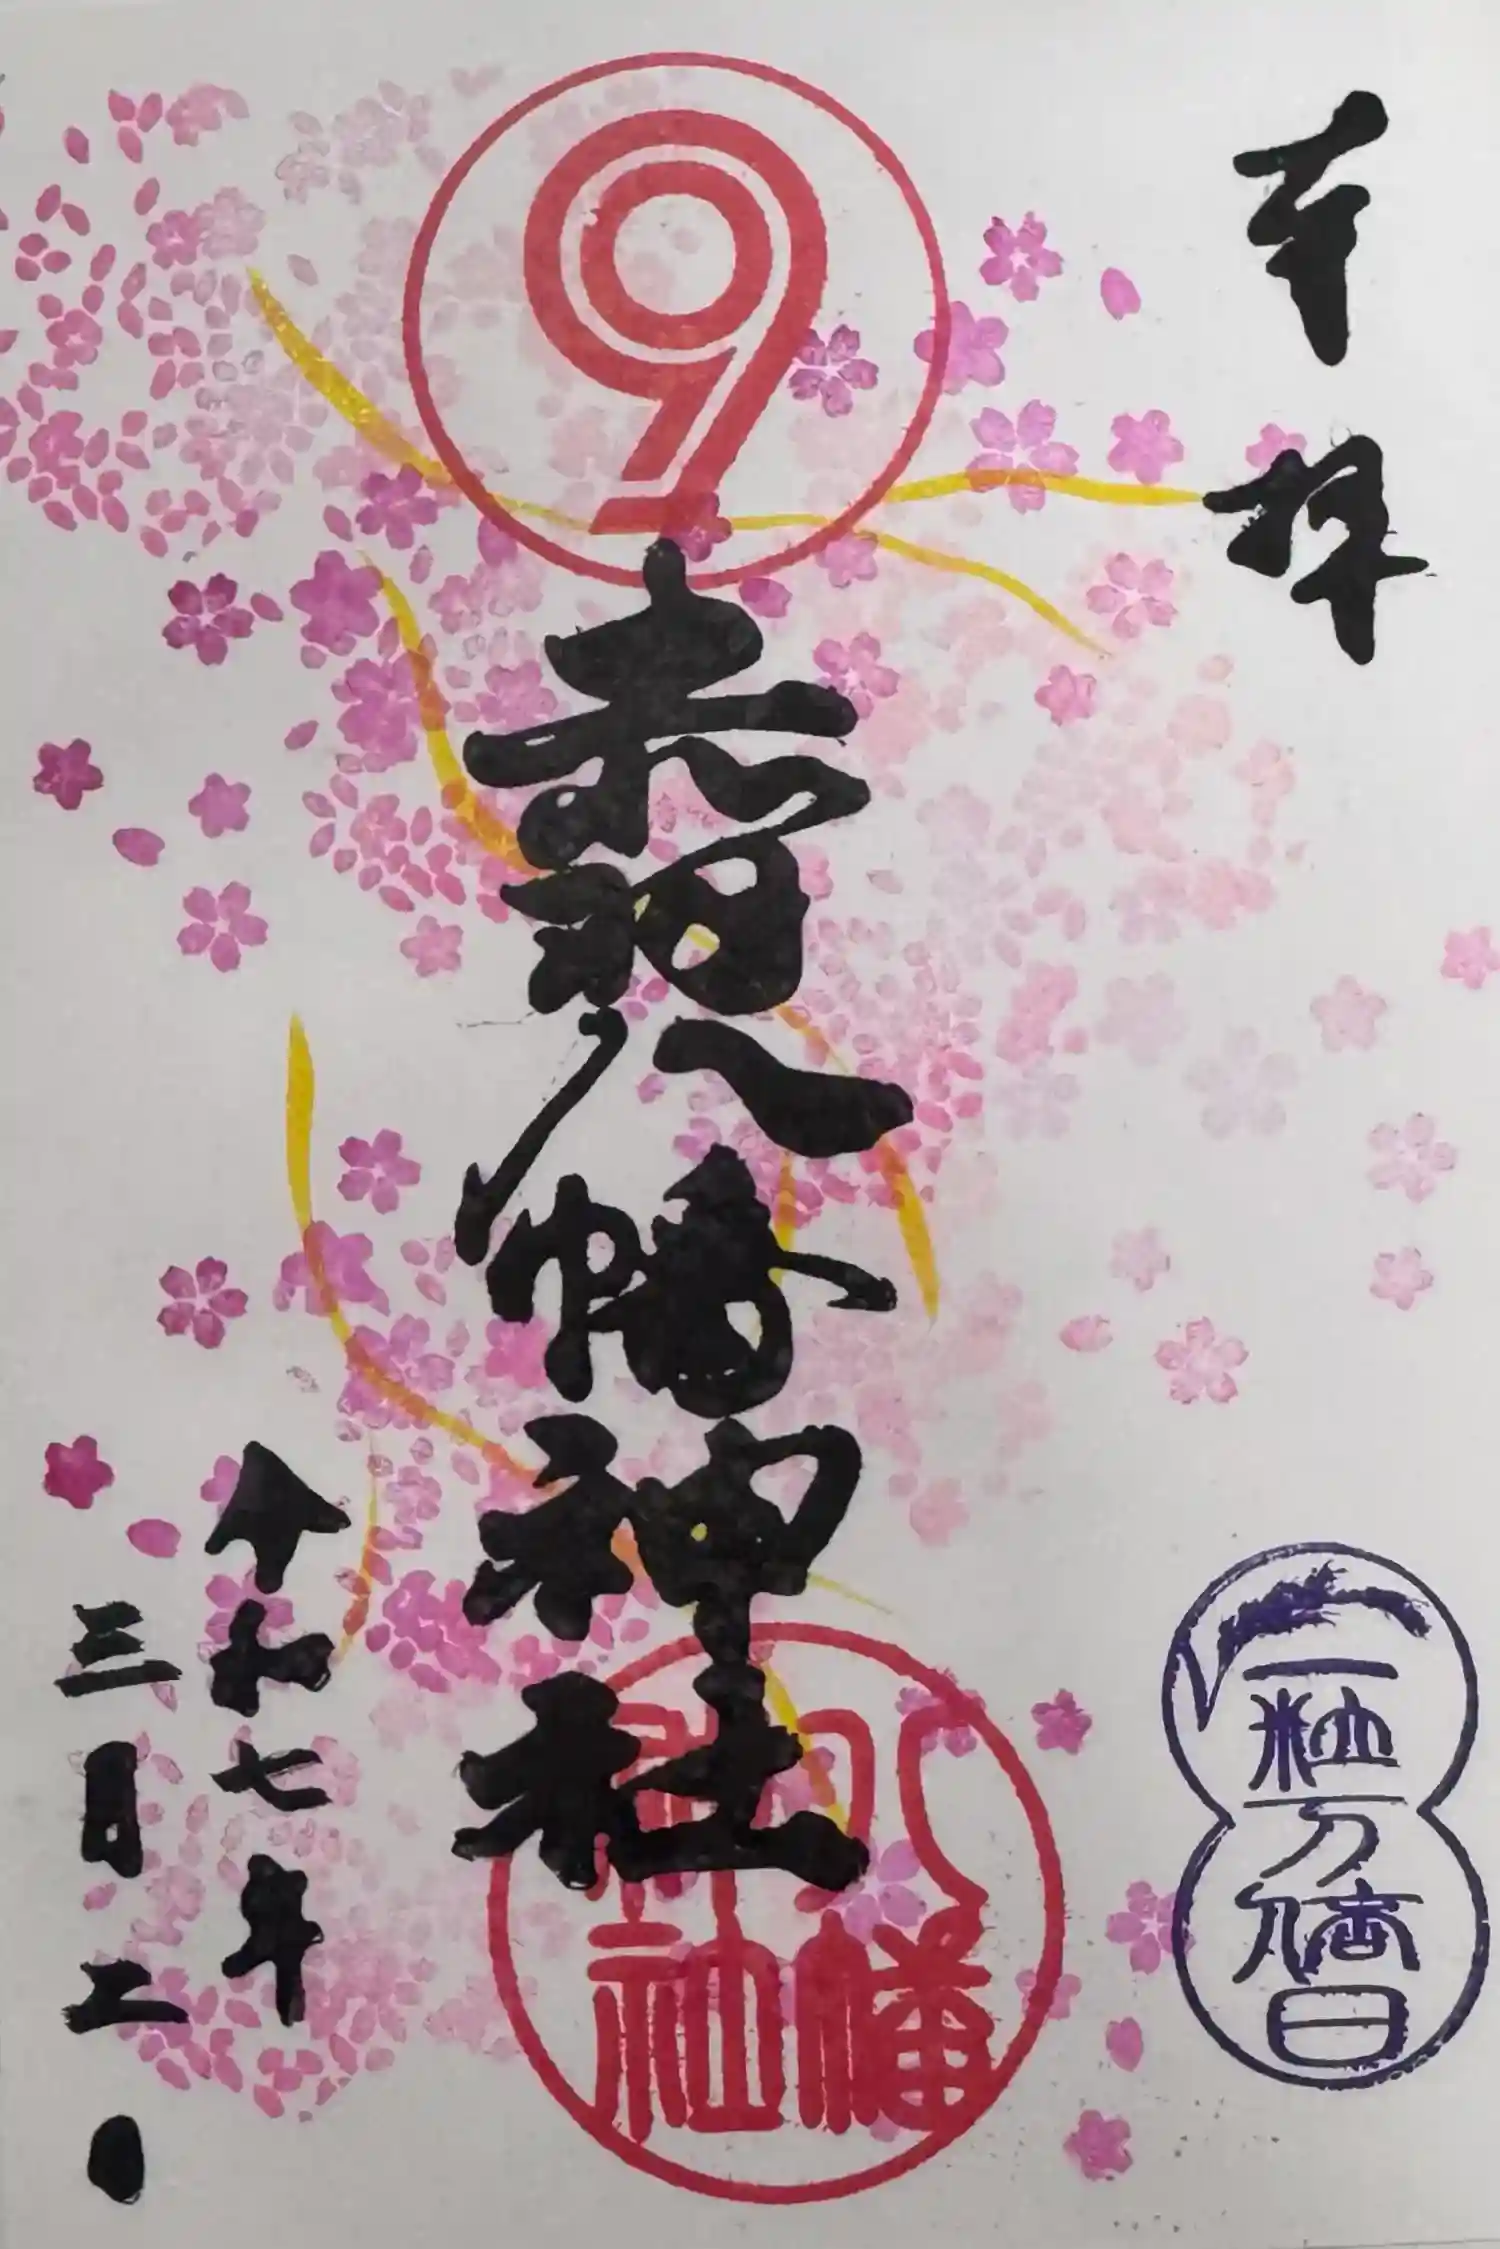 奉拝
9
赤羽八幡神社
八幡
神社
令和七年
三月二日
一粒万倍日